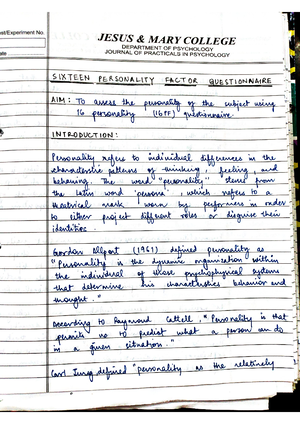 est/Experiment No.
ate
JESUS & MARY COLLEGE
DEPARTMENT OF PSYCHOLOGY
JOURNAL OF PRACTICALS IN PSYCHOLOGY
SIXTEEN PERSONALITY FACTOR QUESTIONNAIRE
AIM: To assess the personality of the subject using
16 personality (16PF) questionnaire
INTRODUCTION:
Personality refers to individual differences in the
characteristic patterns of thinking, feeling, and
behaving. The word "personality" stems from
the Latin word 'persona', which refers to a
theatrical mask worn by performers in order
to either project different roles or disguise their
identities
Gordon Allport (1961) defined personality as
"Personality is the dynamic organisation within
the individual of those psychophysical systems
that determine his characteristics behaviour and
thought."
According to Raymond Cattell, "Personality is that
permits us to predict what a person can do
in a given situation."
Carl Jung defined 'personality as the relatively